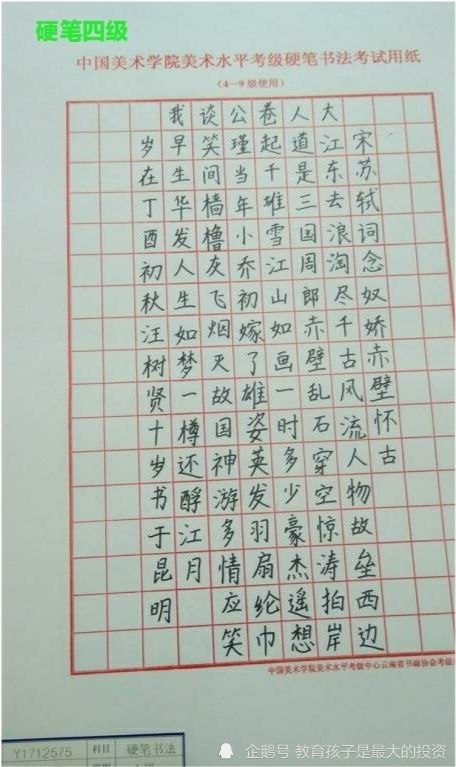 硬笔四级
中国美术学院美术水平考级硬笔书法考试用纸
（4－9级使用）
宋苏轼词念奴娇赤壁怀古
大江东去浪淘尽千古风流人物故垒西边
人道是三国周郎赤壁乱石穿空惊涛拍岸
卷起千堆雪江山如画一时多少豪杰遥想
公瑾当年小乔初嫁了雄姿英发羽扇纶巾
谈笑间樯橹灰飞烟灭故国神游多情应笑
我早生华发人生如梦一樽还酹江月
岁在丁酉初秋汪树贤十岁书于昆明
中国美术学院美术水平考级中心云南省书画协会考级
Y1712575 科目 硬笔书法
企鹅号 教育孩子是最大的投资